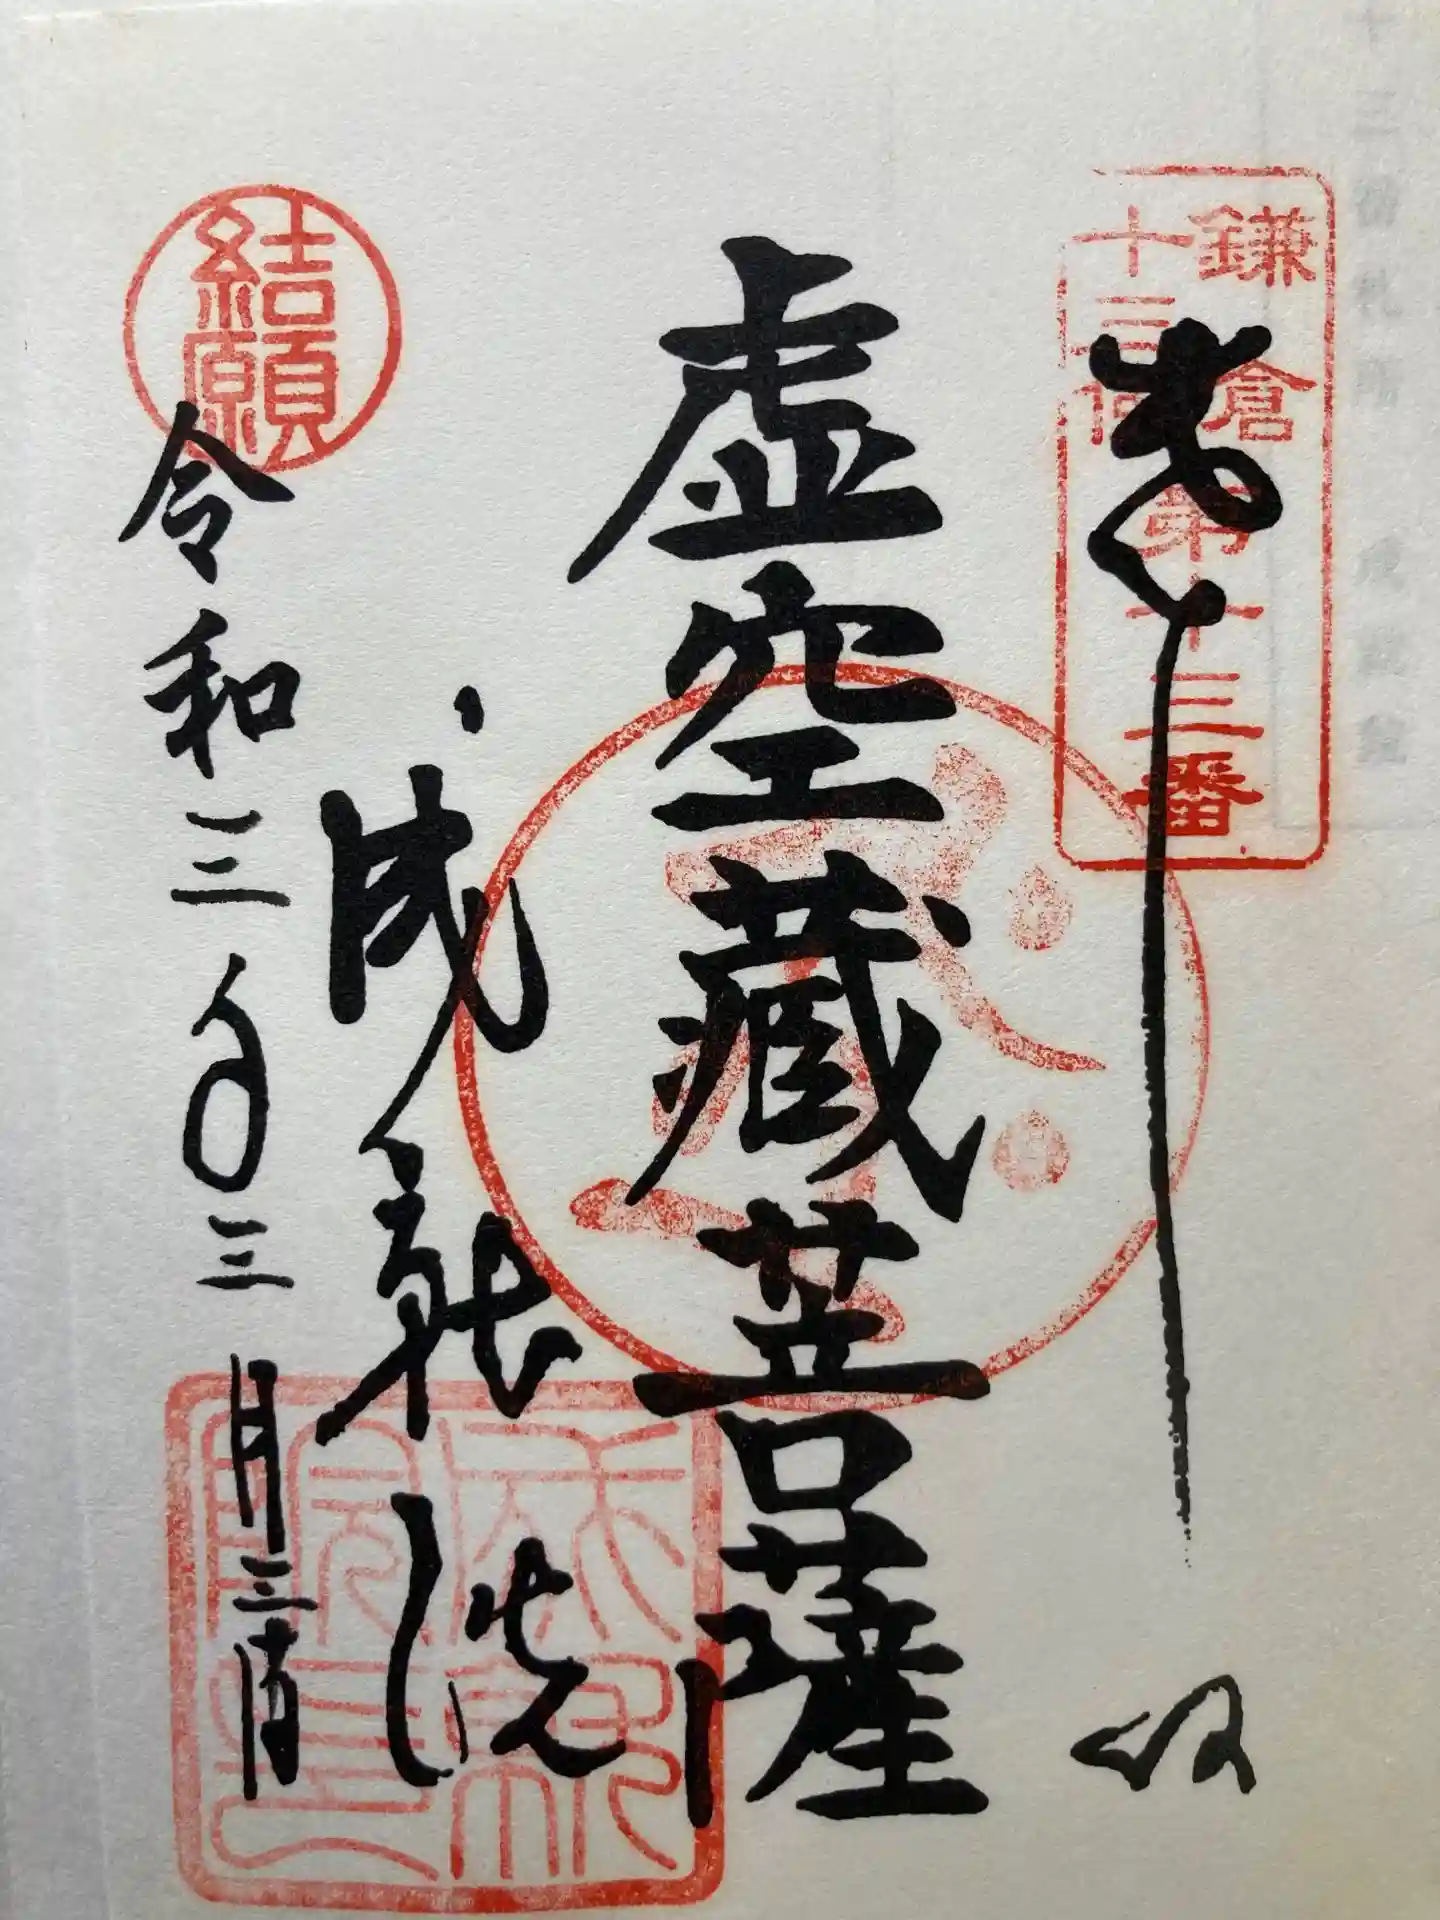 鎌倉
十三仏
第十三番
奉拝
虚空蔵菩薩
成就院
結願
令和三年三月三